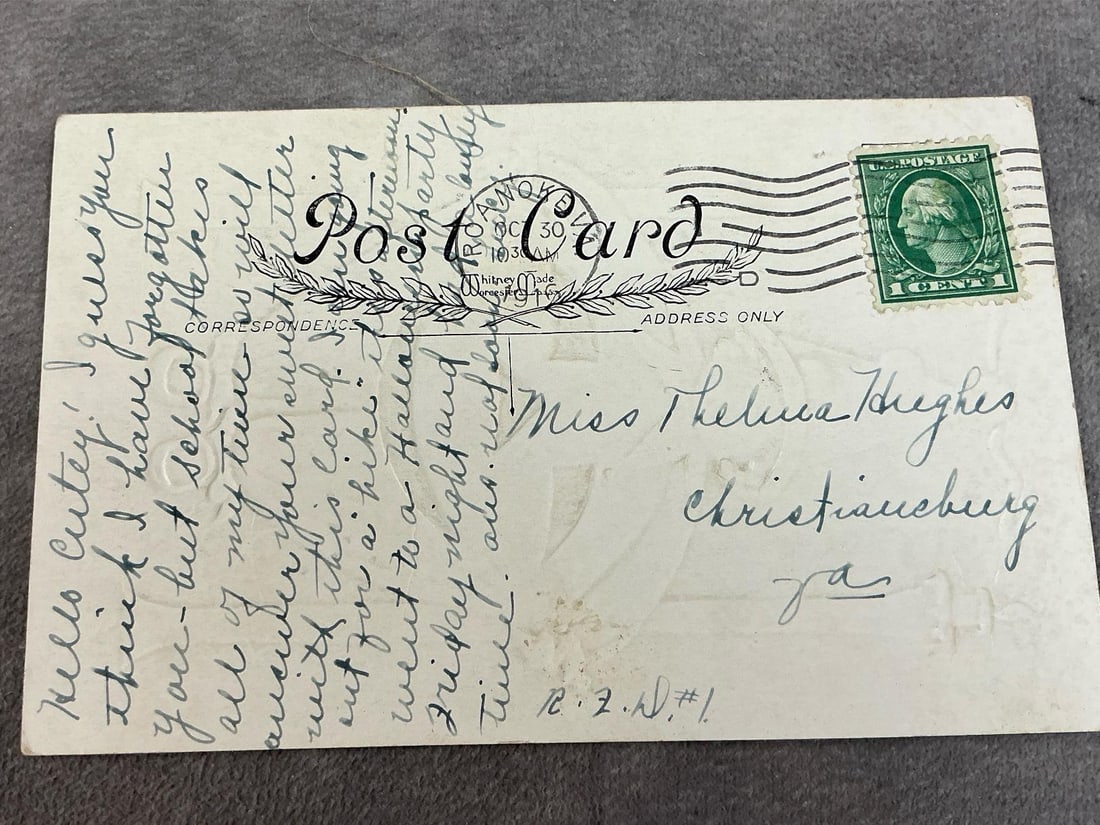 Post Card
ROANOKE VA.
OCT 30
10 30 AM
Whitney Made
Worcester, Mass
CORRESPONDENCE
ADDRESS ONLY
U.S. POSTAGE
1 CENT 1
Hello Cutey! I guess you
think I have forgotten
you - but school takes
all of my time so will
answer your sweet letter
with this card. I am going
out for a hike this afternoon
went to a Halloween party
Friday night and had a
time.
Miss Thelma Hughes
Christiansburg
Va
R.F.D. #1.